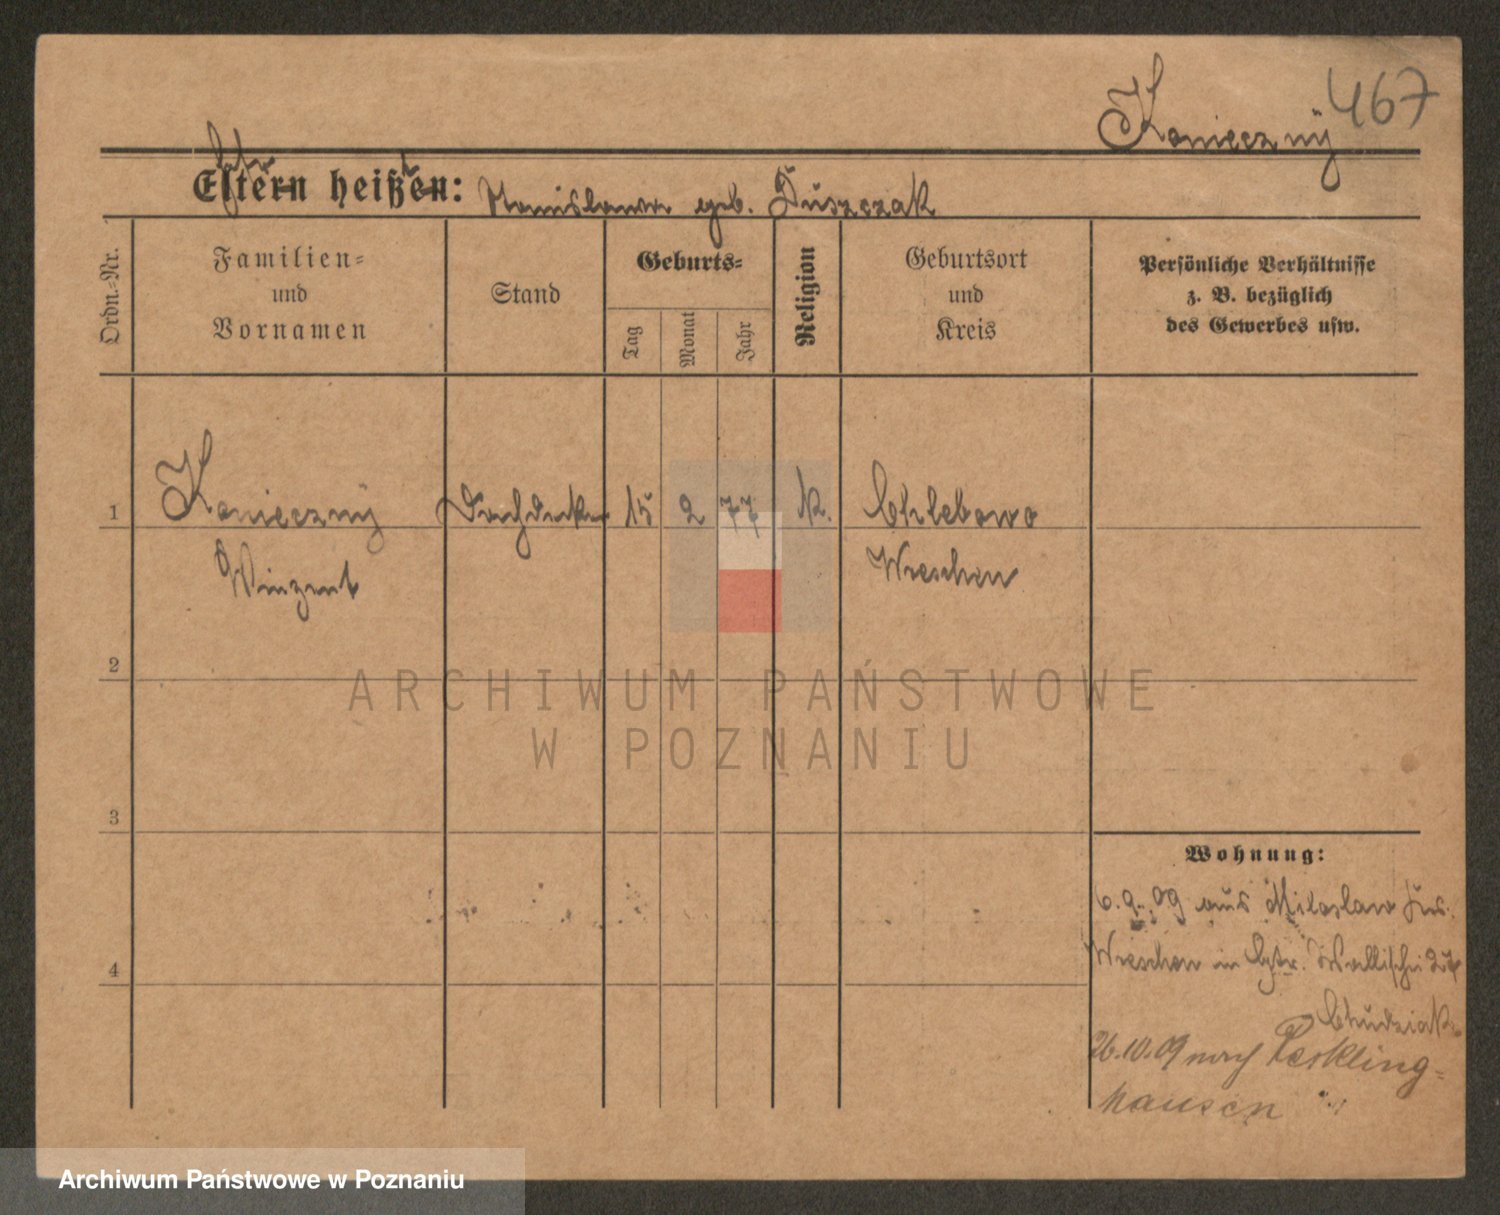 Konieczny 467
Eltern heißen:
geb. Duszczak
Ordn.-Nr.
Familien-
und
Vornamen
Stand
Geburts-
Tag
Monat
Jahr
Religion
Geburtsort
und
Kreis
Persönliche Verhältnisse
z. B. bezüglich
des Gewerbes usw.
1
Konieczny
Winzent
Dachdecker
15
2
77
K.
Chlebowo
Wreschen
2
ARCHIWUM PAŃSTWOWE
W POZNANIU
3
4
Wohnung:
6.9.09 aus Miloslaw Krs.
Wreschen in Wallischei
Chudziak
26.10.09 nach Reckling-
hausen
Archiwum Państwowe w Poznaniu